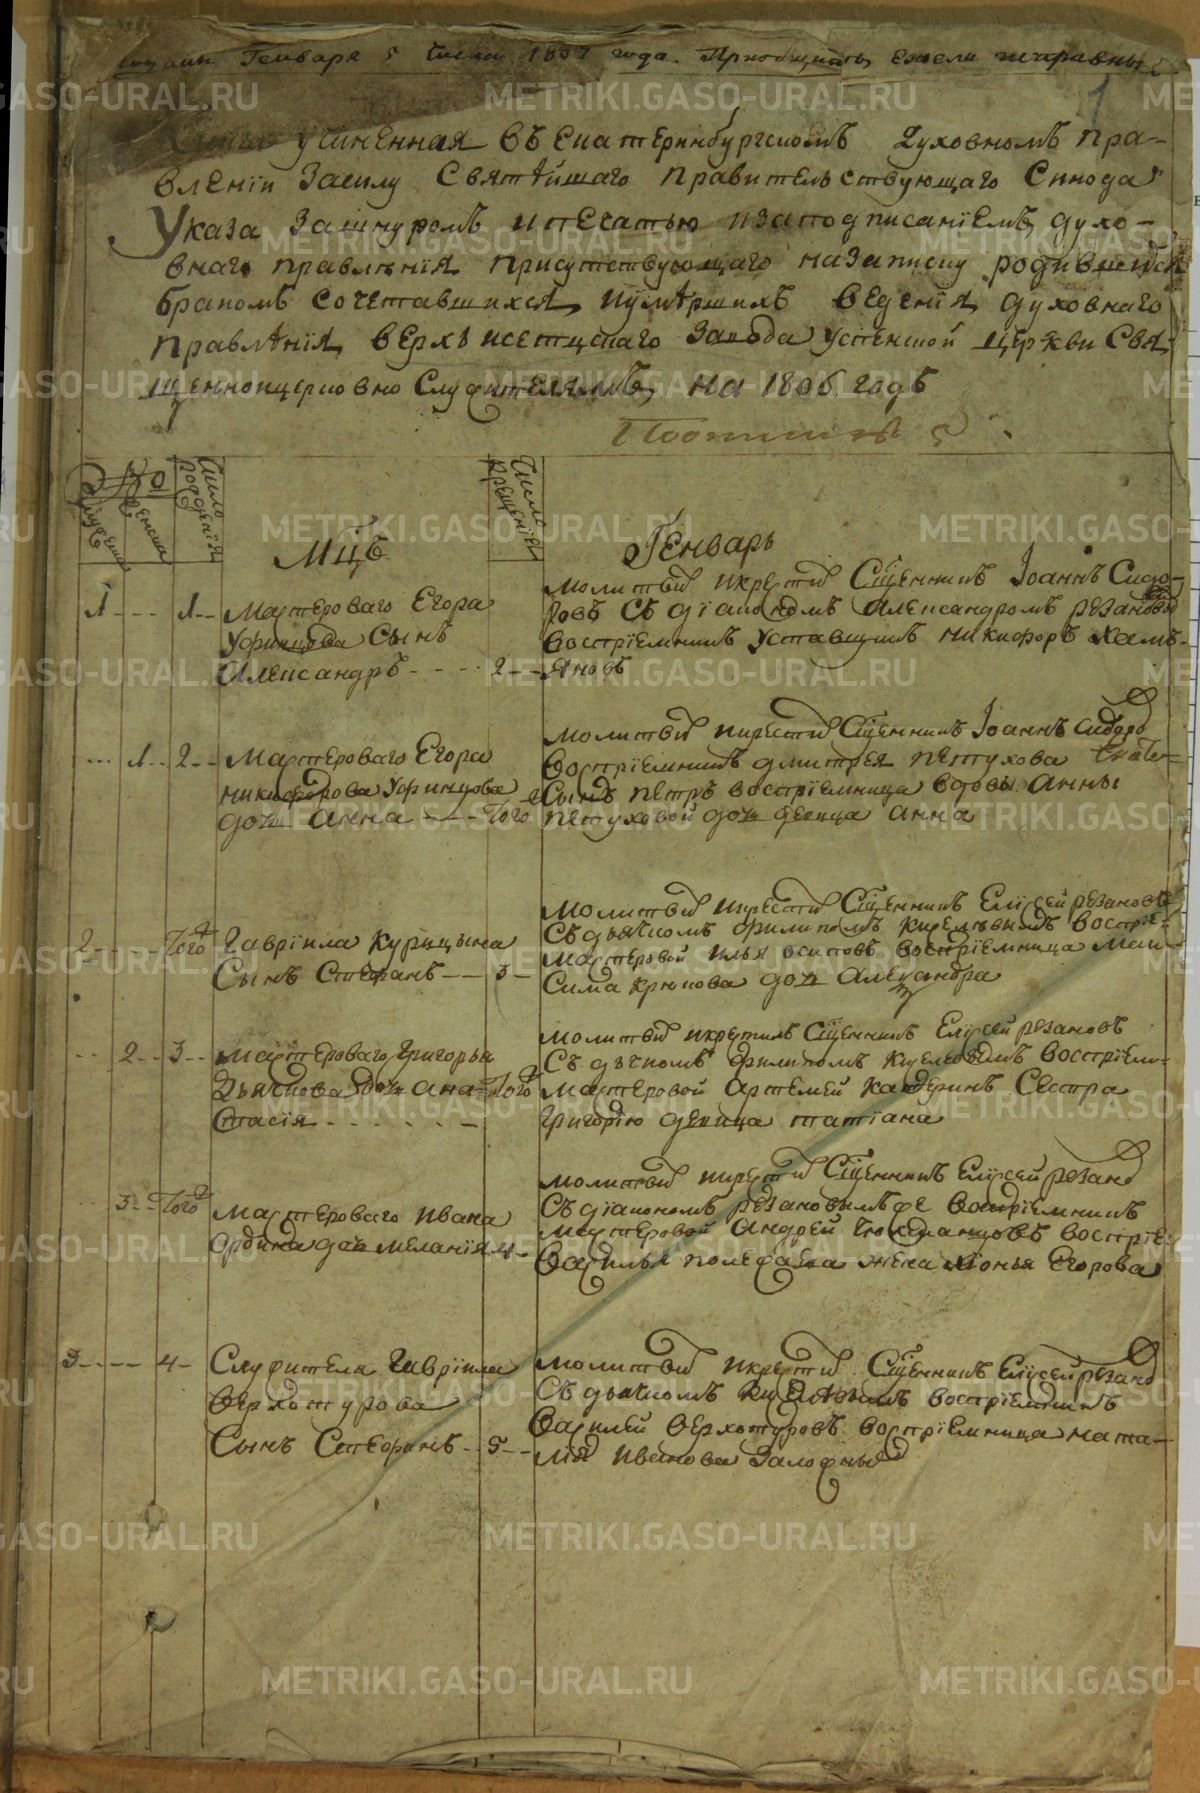 Генваря 5 числа 1807 года. Приобщить, ежели исправны
1
учиненная въ Екатеринбургскомъ духовномъ пра-
вленіи Засилу Святѣйшаго правительствующаго Синода
Указа Зашнуромъ ипечатью изаподписаніемъ духо-
внаго правленія присутствующаго назаписку родившихся
бракомъ сочетавшихся, иумѣршихъ веденія духовнаго
правлѣнія, верхъ исетцкаго Завода успенской церкви Свя-
щенноицерковно Служителямъ, на 1806 годъ
№
мужеска
женска
Число рожденія
Число крещенія
Мцъ
Генварь
1 - - - 1 - - Мастероваго Егора
Уфинцова Сынъ
Александръ - - - - 2 - -
молитвилъ икрестилъ Сщенникъ Іоаннъ Сидо-
ровъ Съ діакономъ Александромъ резановымъ
воспріемникъ уставщикъ никифоръ халъ-
яновъ
- - - 1 - - 2 - - Мастероваго Егора
никифорова Уфинцова
дочь Анна - - - - Того
молитвилъ икрестилъ Сщенникъ Іоаннъ Сидоро
воспріемникъ дмитрея петухова
Сынъ петръ воспріемница вдовы Анны
петуховой дочь девица анна
2 - - - Того Гавріила курицына
Сынъ Стефанъ - - 3 -
молитвилъ икрестилъ Сщенникъ Елісей резановъ
Съ дьячкомъ филипомъ киселевымъ воспріе-
мастеровой илья осиповъ воспріемница Мак-
сима крюкова дочь Александра
- - 2 - - 3 - - Мастероваго Григорья
Дьячкова дочь Ана- Того
стасія - - - - - - -
молитвилъ икрестилъ Сщенникъ Елісей резановъ
Съ дьячкомъ филипомъ киселевымъ воспріем-
мастеровой Артемей Сестра
Григорію девица татіана
3 - - Того Мастероваго ивана
Ордина дочь меланія 4 -
молитвилъ икрестилъ Сщенникъ Елісей резано
Съ діакономъ резановымъ же воспріемникъ
мастеровой Андрей воспріе:
Василья полефаева жена хіонья Егорова
3 - - - - 4 - Служителя Гавріила
верхотурова
Сынъ Стефанъ - - 5 - -
молитвилъ икрестилъ Сщенникъ Елісей резано
Съ дьячкомъ киселевымъ воспріемникъ
Василей верхотуровъ воспріемница ната-
лія иванова
METRIKI.GASO-URAL.RU